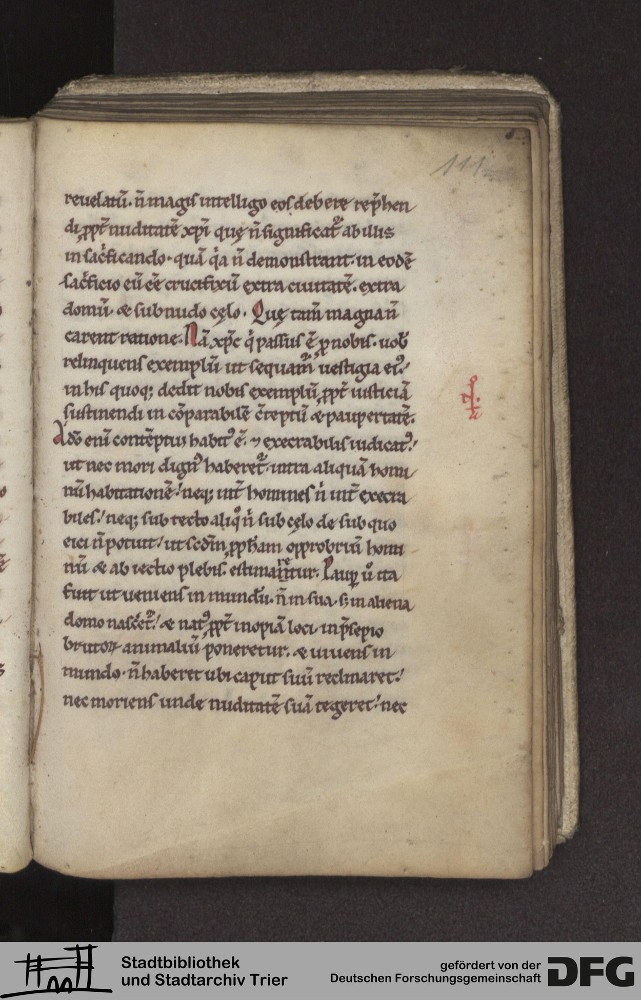 111
reuelatū. n̄ magis intelligo eos debere rep̄hen
di ꝓpt̄ nuditatē xp̄i quę n̄ significat᷑ ab illis
in sac̄ficando. quā q̇a n̄ demonstrant in eodē
sac̄ficio eū eē crucifixū extra ciuitatē. extra
domū. & sub nudo cęlo. Quę tam̄ magna n̄
carent ratione. Nā xp̄c q̇ passus ē ꝓ nobis. uob̄
relinquens exemplū ut sequam̄ uestigia ei᷒.
in his quoq; dedit nobis exemplū ꝓpt̄ iusticiā
sustinendi incōparabilē c̄teptū & paupertatē.
Adō enī contēptus habit᷒ ē. ⁊ execrabilis iudicat᷒.
ut nec mori dign᷒ haberet᷑ intra aliquā homi
nū habitationē. neq; int̄ homines n̄ int̄ execra
biles. neq; sub tecto aliq̊ n̄ sub cęlo de sub quo
eici n̄ potuit. ut sc̄dm ꝓph̄am opprobriū homi
nū & abiectio plebis estimaretur. Paup̱ ů ita
fuit ut ueniens in mundū. n̄ in sua s; in aliena
domo nasc̄et᷑. & nat᷒ ꝓpt̄ inopiā loci in p̄sepio
brutoꝝ animaliū poneretur. & uiuens in
mundo. n̄ haberet ubi caput suū reclinaret.
nec moriens unde nuditatē suā tegeret. nec
Stadtbibliothek
und Stadtarchiv Trier
gefördert von der
Deutschen Forschungsgemeinschaft
DFG